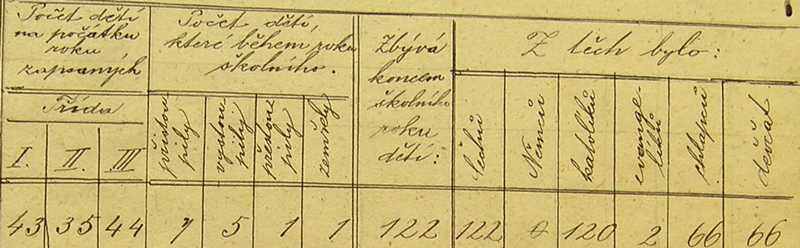 Počet dětí
na počátku
roku
zapsaných
Třída
I. II. III
Počet dětí,
které během roku
školního.
přistou
pily
vystou
pily
přestou
pily
zemřely
Zbývá
koncem
školního
roku
dětí:
Z těch bylo:
Čechů
Němců
katolíků
evange
líků
chlapců
děvčat
43 35 44 7 5 1 1 122 122 0 120 2 66 66